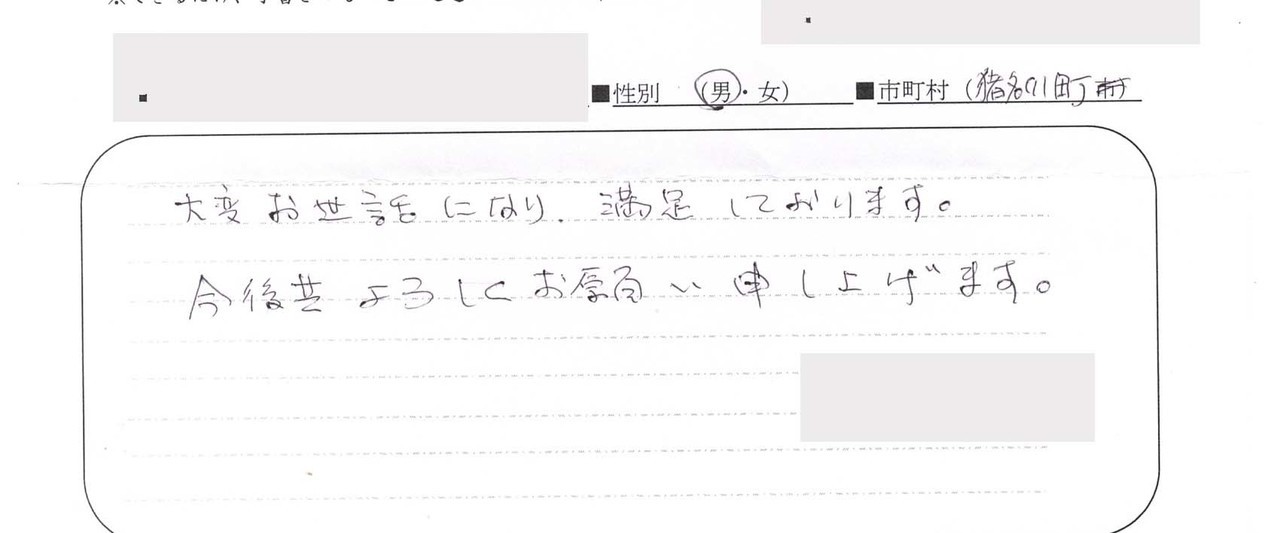 ■性別 (男・女) ■市町村 (猪名川町
大変お世話になり、満足しております。
今後共よろしくお願い申し上げます。